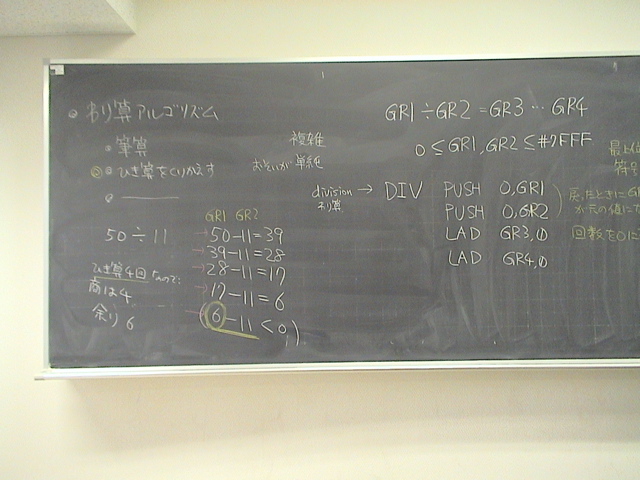 わり算アルゴリズム
筆算 複雑
ひき算をくりかえす おそいが単純
50÷11
ひき算4回なので:
商は4
余り6
GR1 GR2
50-11=39
39-11=28
28-11=17
17-11=6
(6-11<0)
GR1÷GR2=GR3…GR4
0≦GR1,GR2≦#7FFF
division → DIV PUSH 0,GR1
わり算 PUSH 0,GR2
LAD GR3,0
LAD GR4,0
最上位
符号
戻ったときにGR
が元の値に
回数を0に